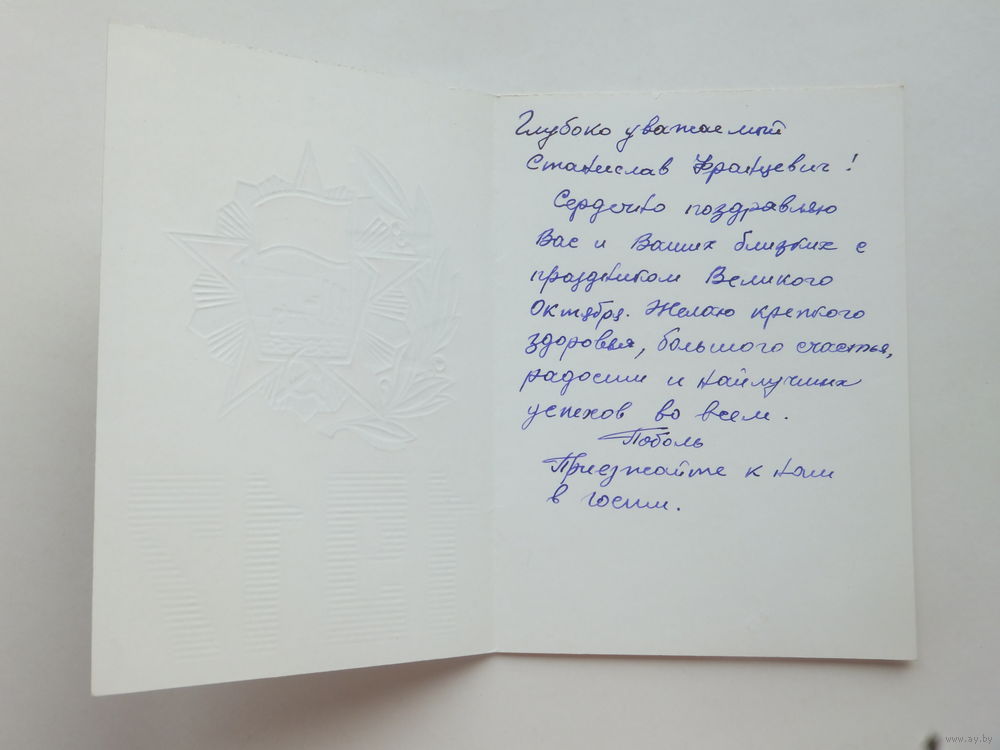 Глубоко уважаемый
Станислав Францевич!
Сердечно поздравляю
Вас и Ваших близких с
праздником Великого
Октября. Желаю крепкого
здоровья, большого счастья,
радости и наилучших
успехов во всем.
Поболь
Приезжайте к нам
в гости.
www.ay.by